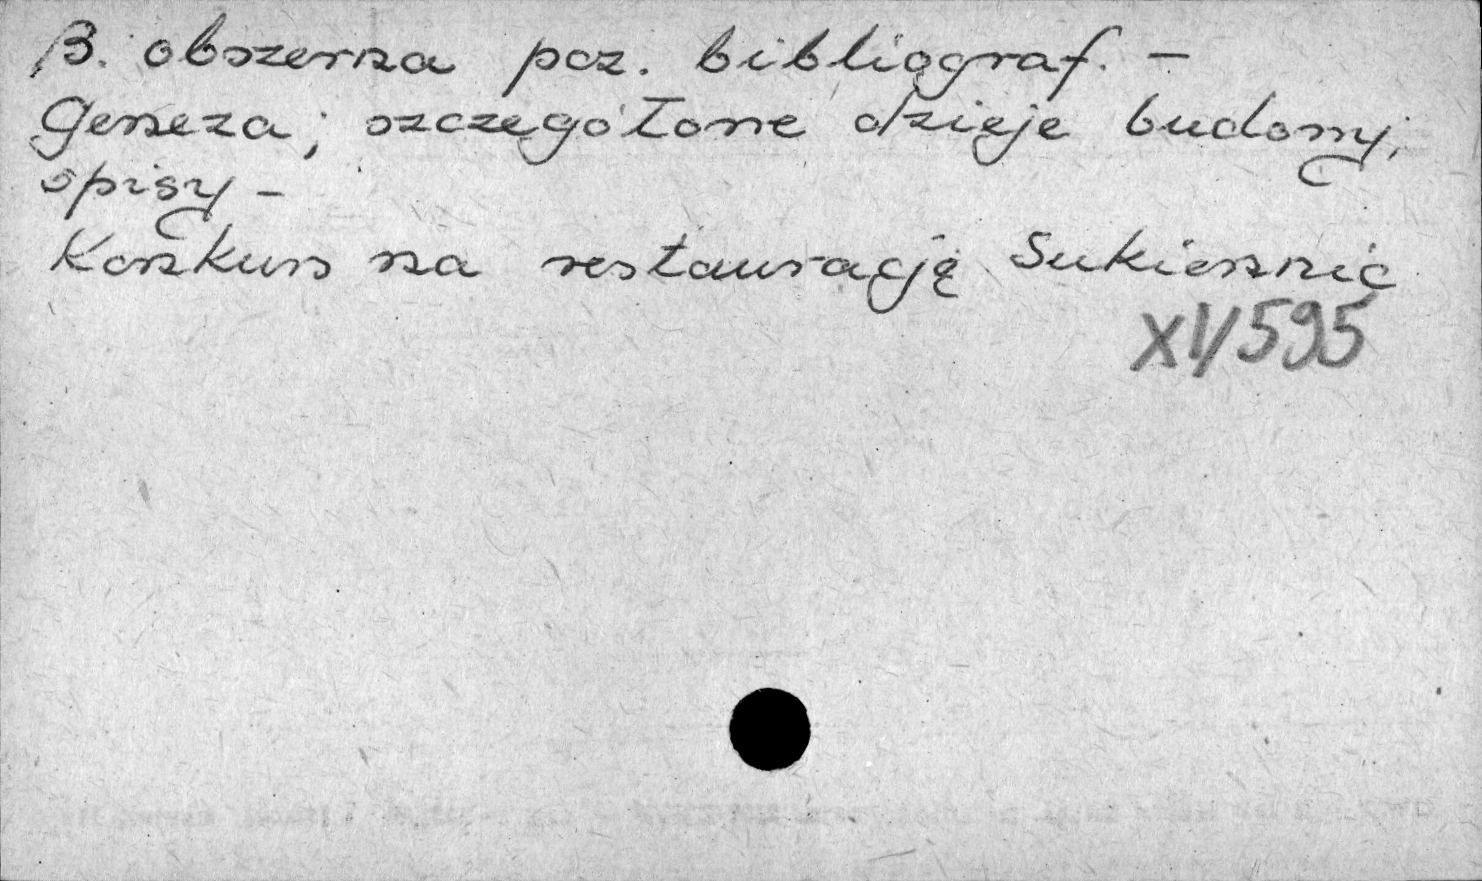 B. obszerna poz. bibliograf. –
Geneza; szczegółowe dzieje budowy,
opisy –
Konkurs na restaurację Sukiennic
XV/595